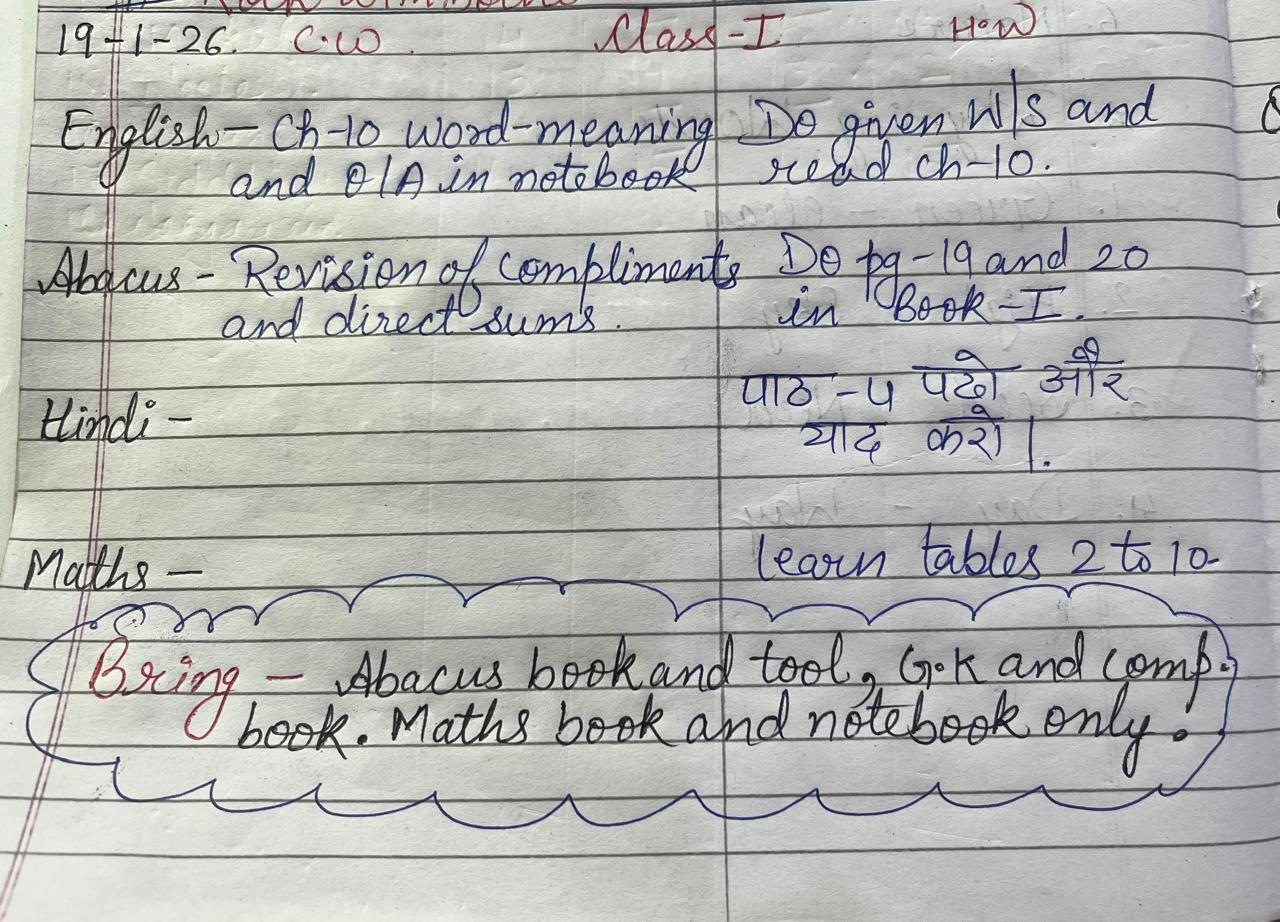 19-1-26. C.W. Class-I H.W
English - Ch-10 word-meaning Do given W/S and
and Q/A in notebook read ch-10.
Abacus - Revision of compliments Do pg-19 and 20
and direct sums. in Book-I.
Hindi - पाठ -५ पढो और
याद करो |.
Maths - learn tables 2 to 10.
Bring - Abacus book and tool, G.K and comp.
book. Maths book and notebook only.